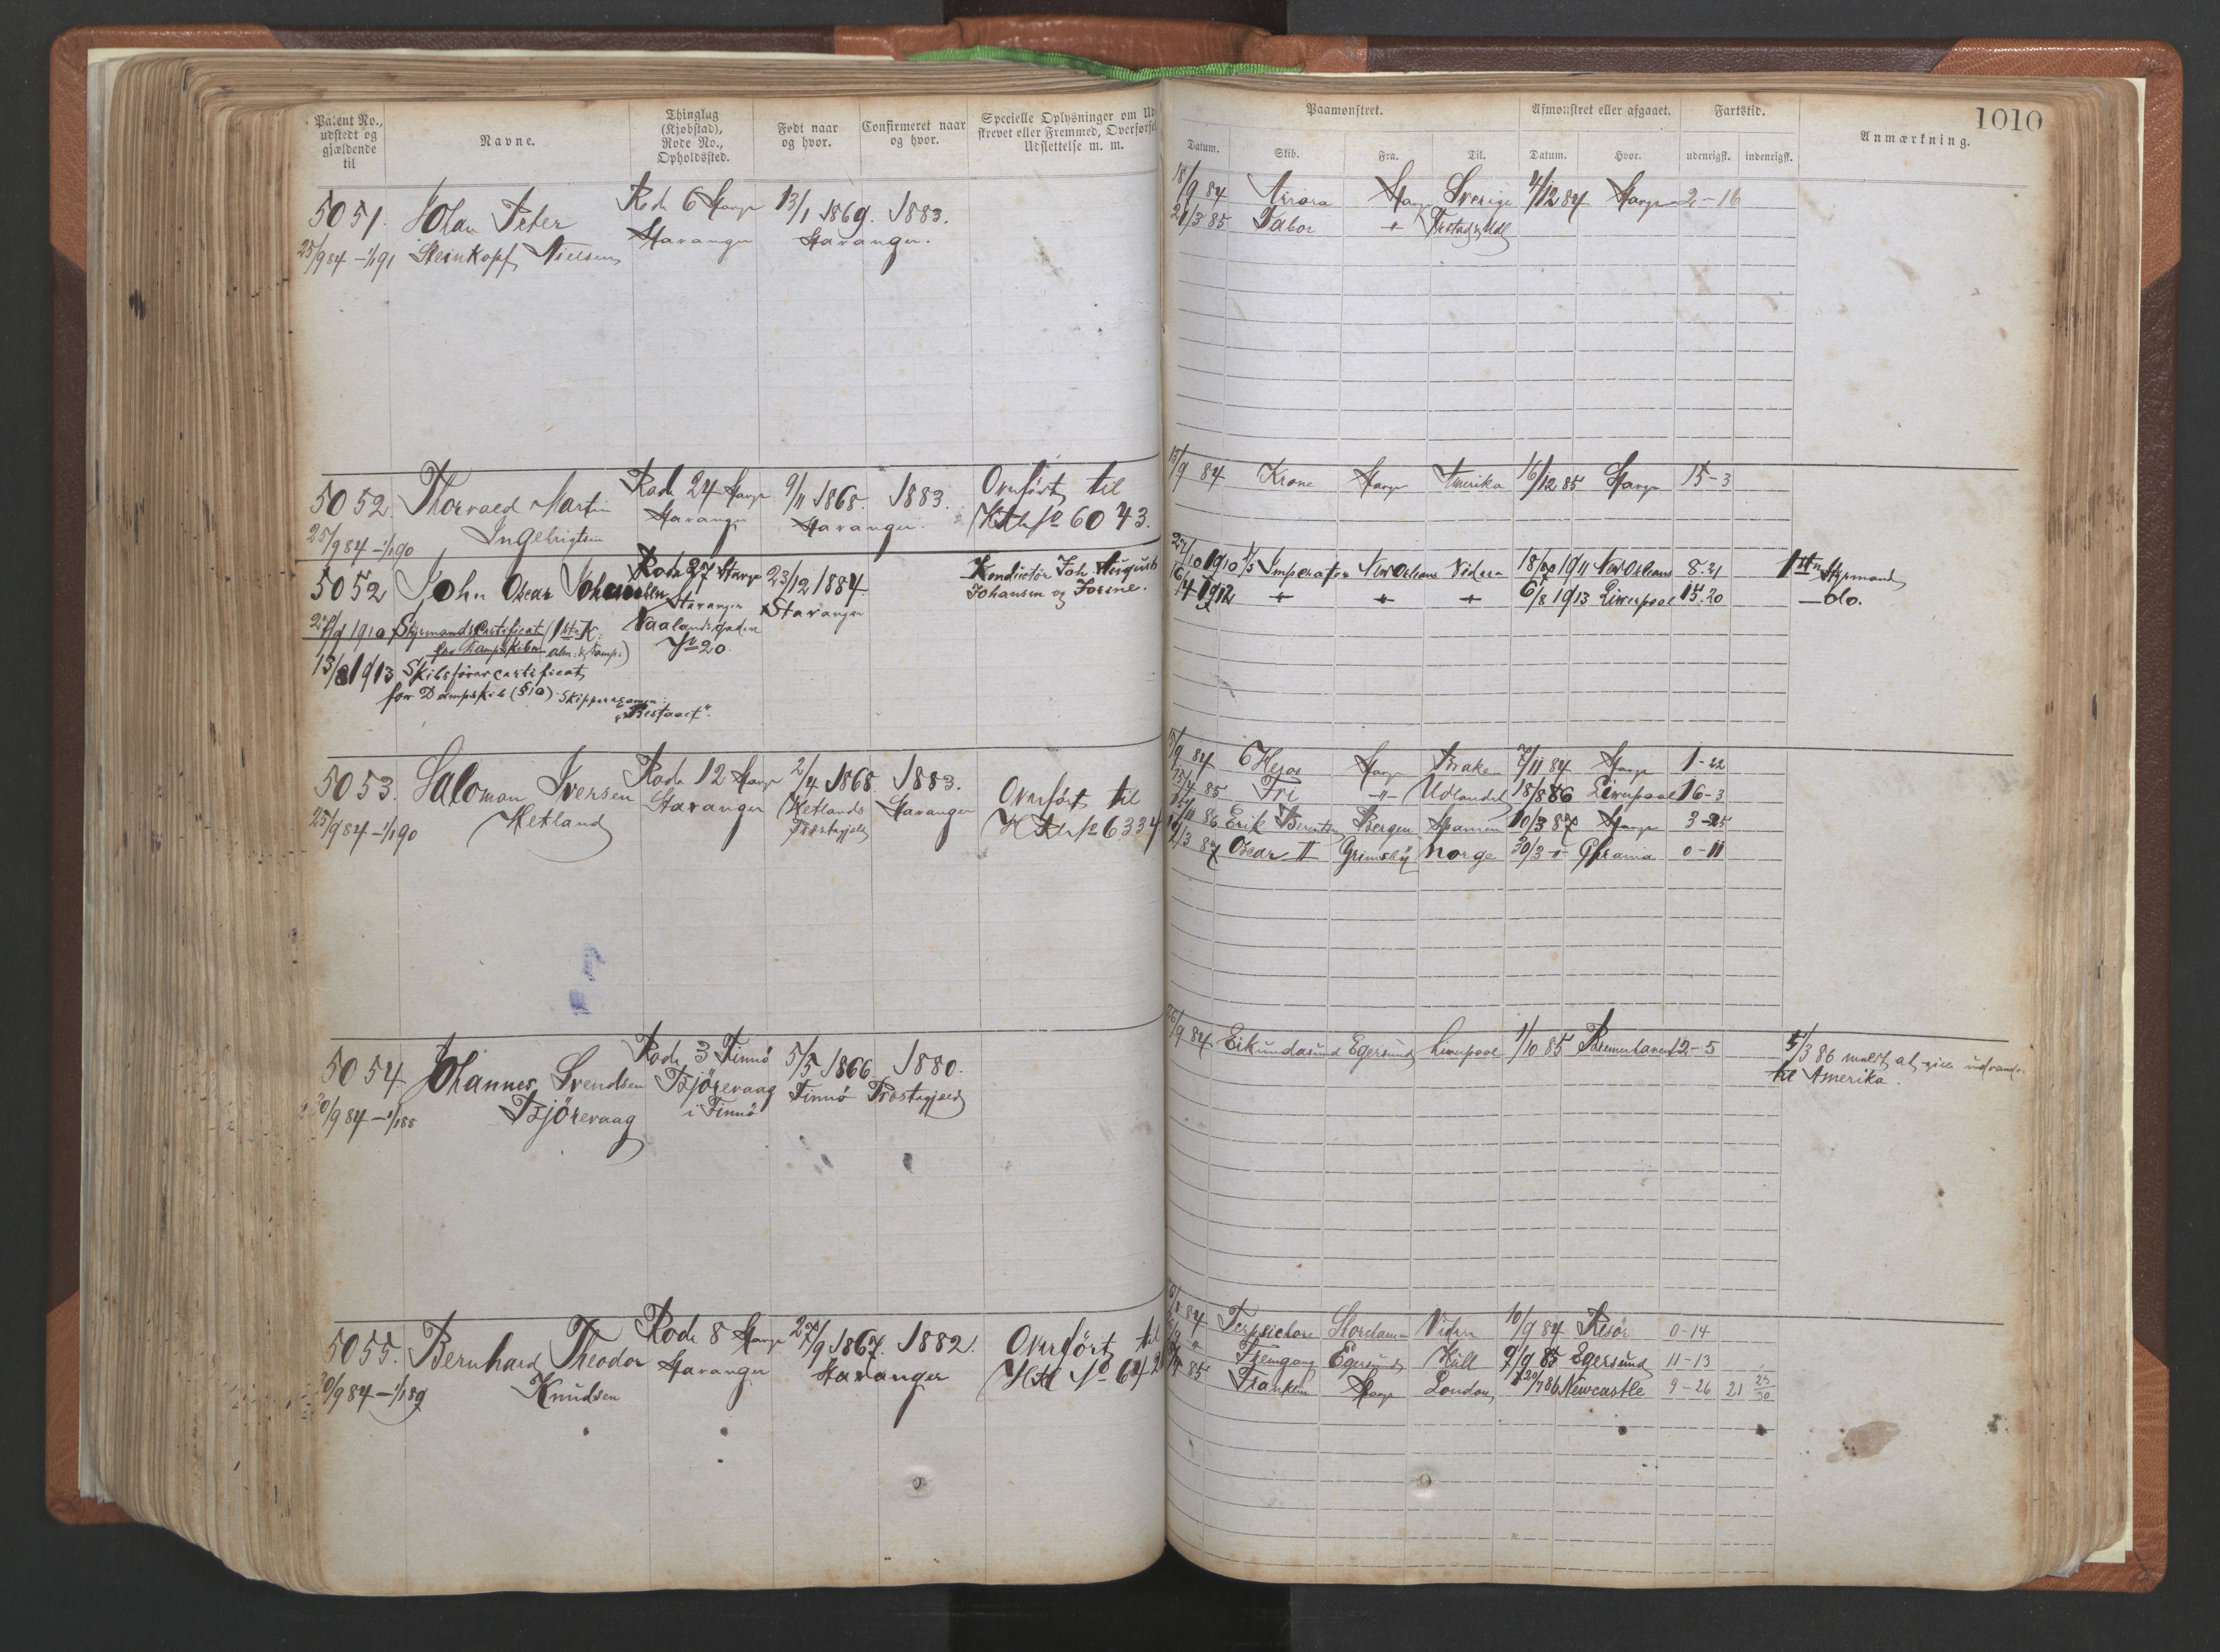 1010
Patent No., udstedt og gjældende til
Navne.
Thinglag (Kjøbstad), Rode No., Opholdssted.
Født naar og hvor.
Confirmeret naar og hvor.
Specielle Oplysninger om Ud
skrevet eller Fremmed, Overførsel
Udslettelse m. m.
Paamønstret.
Afmønstret eller afgaaet.
Fartstid.
Anmærkning.
Datum. Skib. Fra. Til. Datum. Hvor. udenrigsk. indenrigsk.
5051. Johan Peter Rode 6 Stavgr 13/1 1869. 1883.
25/9 84 – 1/1 91 Steinkopf Nielsen Stavanger Stavanger.
18/9 84 Aurora Stavgr Sverige 4/12 84 Stavgr 2 – 16
21/3 85 Tabor " Fredstad & Udl
5052. Thorvald Martin Rode 24 Stavgr 9/11 1868. 1883. Overført til
25/9 84 – 1/1 90 Ingebrigtsen Stavanger Stavanger. No 6043.
15/9 84 Krone Stavgr Amerika 16/12 85 Stavgr 15 – 3
5052 John Oscar Johansen Rode 27 Stavgr 23/12 1884 Konditor Joh August
Stavanger Stavanger Johansen og Josine.
1910 Styrmandscertifikat 1ste K. Vaalandsgaden
for Dampskibe alm: & Damp:) No 20.
13/8 1913 Skibsførercertificat
for Dampskib (§10) Skipperexamen:
"Bestaaet".
27/10 1910 Imperator New Orleans Videre 1911 New Orleans 8. 21 1ste Styrmand
16/4 1912 " " " 6/8 1913 Liverpool 15. 20 – do.
5053. Salomon Iversen Rode 12 Stavgr 2/4 1868. 1883. Overført til
25/9 84 – 1/1 90 Hetland Stavanger Hetlands Præstegjeld Stavanger No 6334
84 Stavgr Brake 7/11 84 Stavgr 1 – 22
85 Fri " Udlandet 18/8 86 Liverpool 16 – 3
86 Erik Berentsen Bergen Spanien 10/3 87 Stavgr 3 – 25
19/3 87 Oscar II Grimsby Norge 30/3 " Chrania 0 – 11
5054. Johannes Svendsen Rode 3 Finnö 5/5 1866. 1880.
30/9 84 – 1/1 88 Bjørevaag Bjørevaag i Finnö Finnö Præstegjeld
26/9 84 Eikundasund Egersund Liverpool 1/10 85 Bremerhaven 12 – 5 5/3 86 meldt at ville udvandre
til Amerika.
5055. Bernhard Theodor Rode 8 Stavgr 27/9 1867. 1882. Overført til
30/9 84 – 1/1 89 Knudsen Stavanger Stavanger No 642
84 Terpsichore Videre 10/9 84 Risör 0 – 14
Fremgang Egersund Hull 9/9 85 Egersund 11 – 13
85 Franklin Stavgr London 86 Newcastle 9 – 26 21 23/30